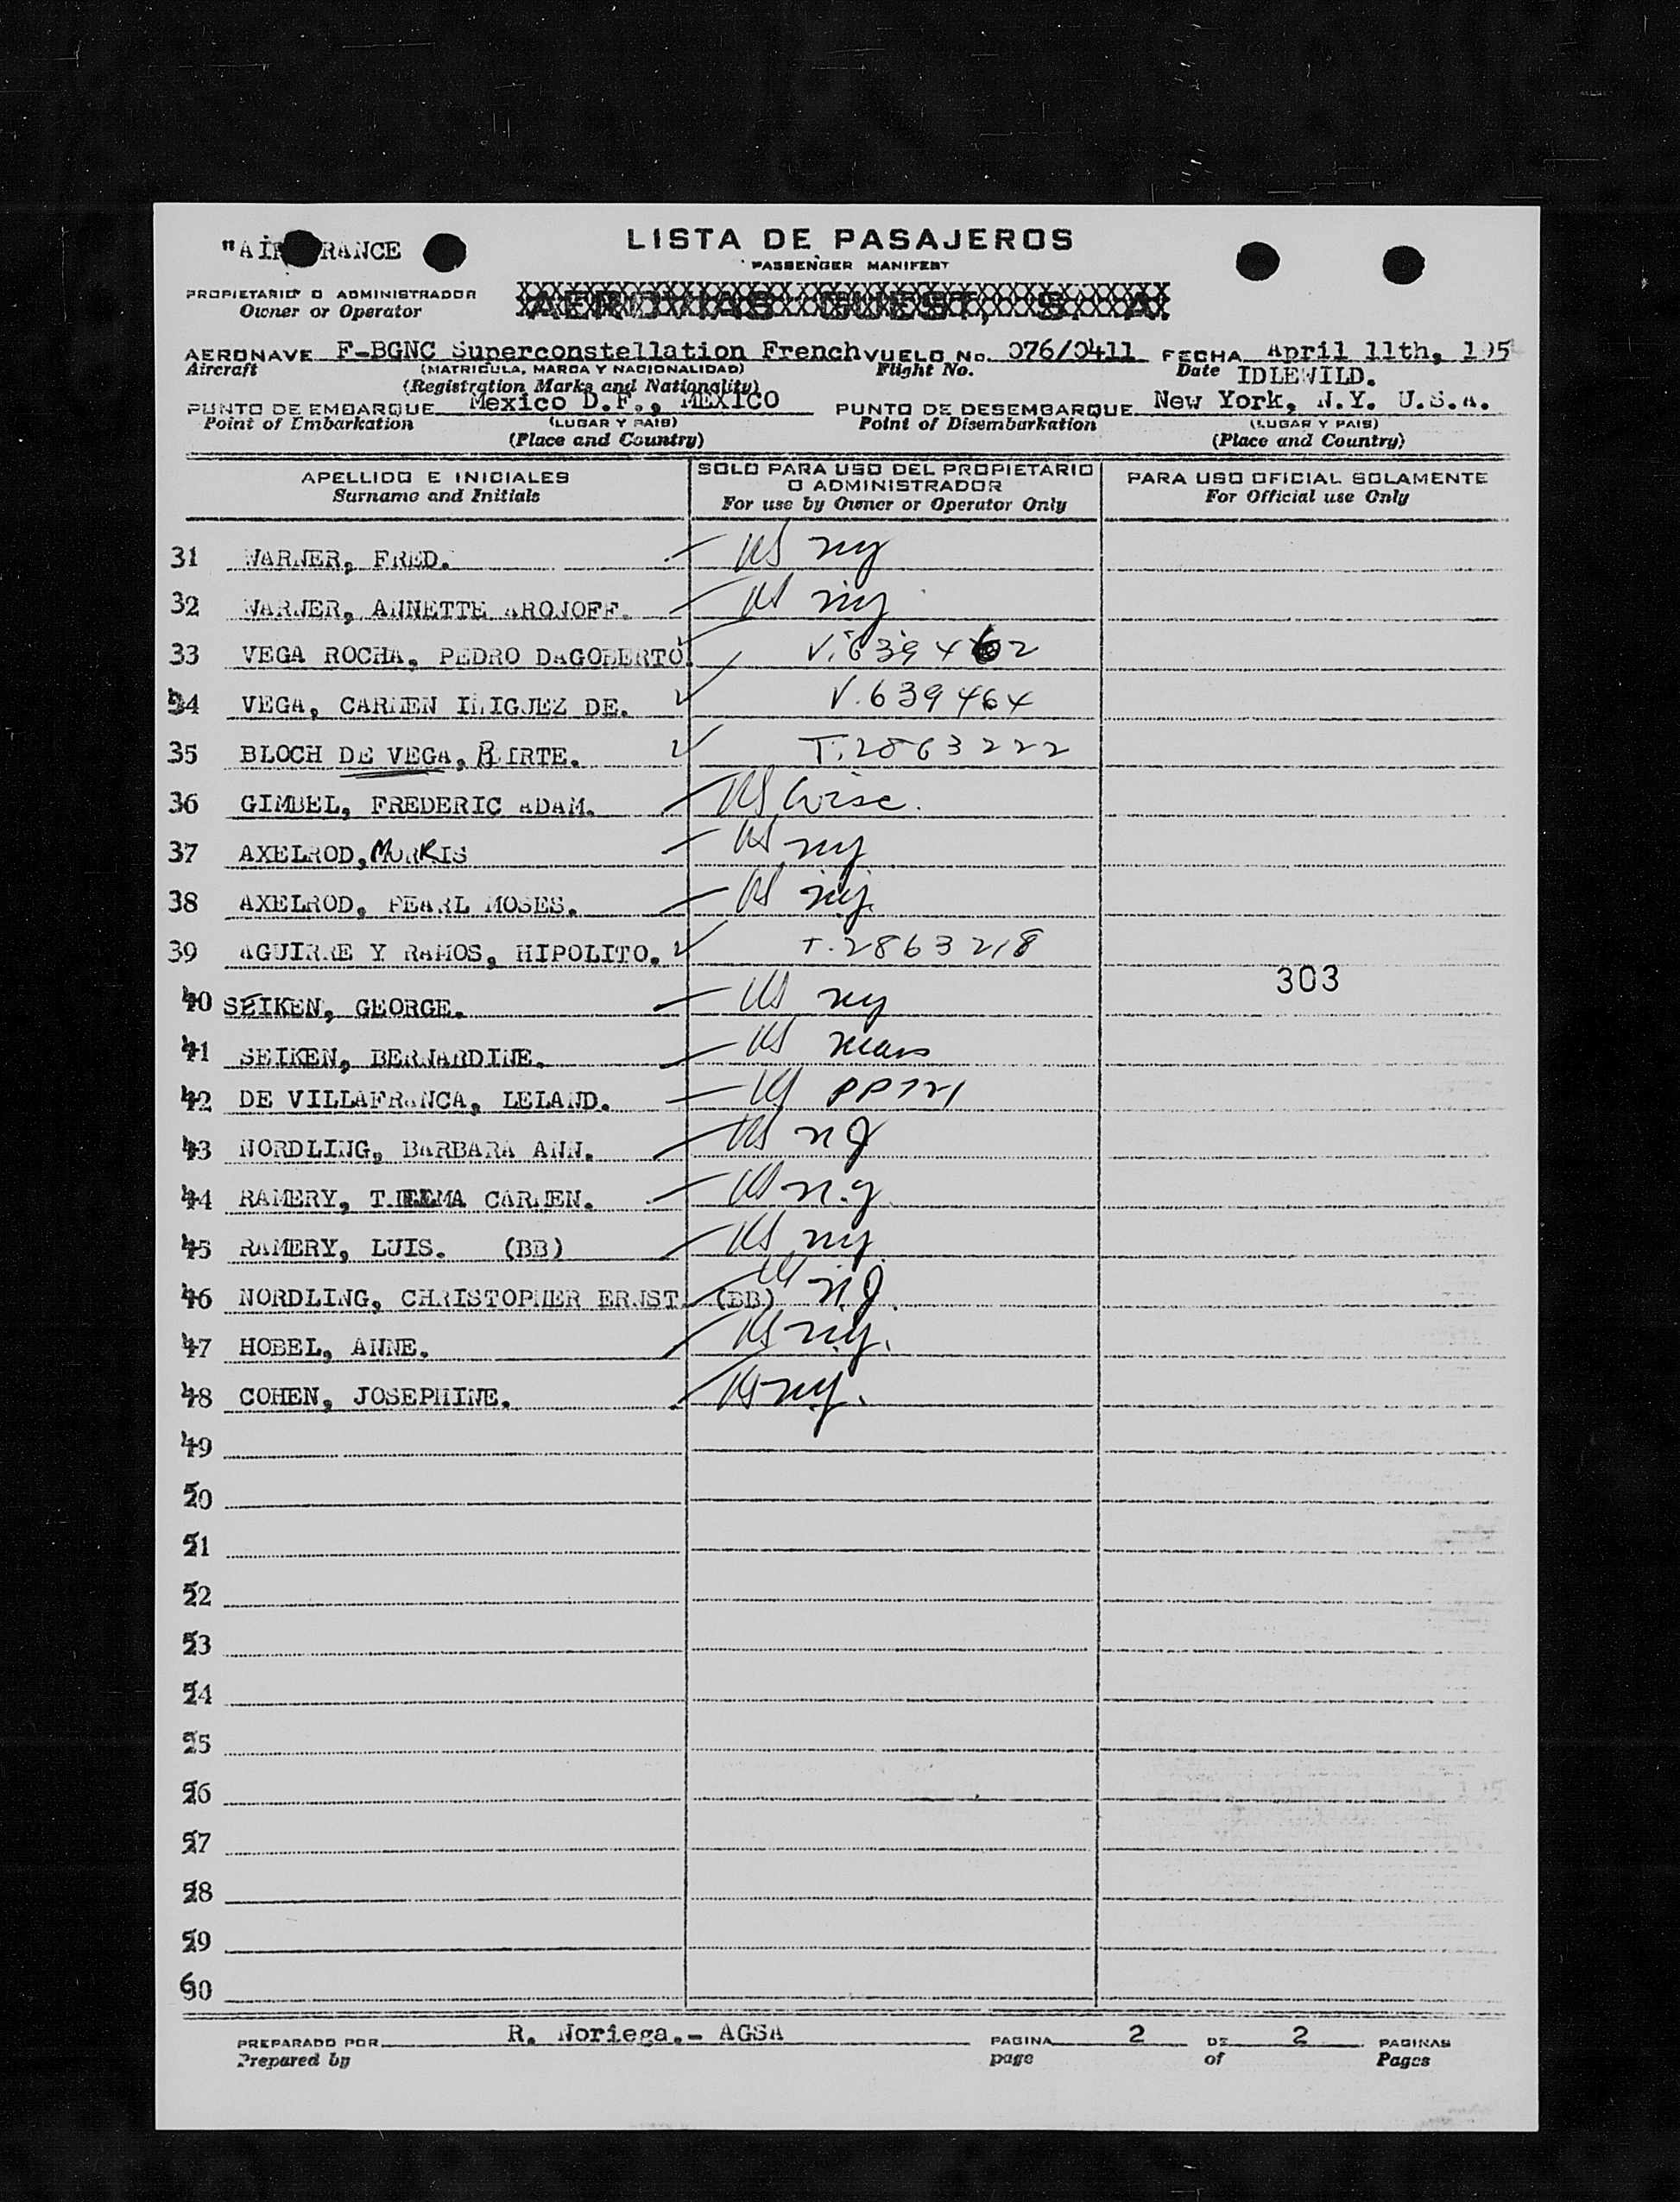 "AIR FRANCE
LISTA DE PASAJEROS
PASSENGER MANIFEST
PROPIETARIO O ADMINISTRADOR
Owner or Operator
AEROVIAS GUEST, S. A.
AERONAVE F-BGNC Superconstellation French VUELO No. 076/0411 FECHA April 11th, 195
Aircraft (MATRICULA, MARCA Y NACIONALIDAD) Flight No. Date IDLEWILD.
(Registration Marks and Nationality)
PUNTO DE EMBARQUE Mexico D.F., MEXICO PUNTO DE DESEMBARQUE New York, N.Y. U.S.A.
Point of Embarkation (LUGAR Y PAIS) Point of Disembarkation (LUGAR Y PAIS)
(Place and Country) (Place and Country)
APELLIDO E INICIALES SOLO PARA USO DEL PROPIETARIO O ADMINISTRADOR PARA USO OFICIAL SOLAMENTE
Surname and Initials For use by Owner or Operator Only For Official use Only
31 WARNER, FRED. US ny
32 WARNER, ANNETTE ARONOFF. US ny
33 VEGA ROCHA, PEDRO DAGOBERTO. V.639462
34 VEGA, CARMEN INIGUEZ DE. V.639464
35 BLOCH DE VEGA, BIRTE. T.2863222
36 GIMBEL, FREDERIC ADAM. US Wisc.
37 AXELROD, MORRIS US ny
38 AXELROD, PEARL MOSES. US ny
39 AGUIRRE Y RAMOS, HIPOLITO. T.2863218
303
40 SEIKEN, GEORGE. US ny
41 SEIKEN, BERNARDINE. US mass
42 DE VILLAFRANCA, LELAND. US PP721
43 NORDLING, BARBARA ANN. US NJ
44 RAMERY, THELMA CARMEN. US n.y
45 RAMERY, LUIS. (BB) US ny
46 NORDLING, CHRISTOPHER ERNST. (BB) US NJ.
47 HOBEL, ANNE. US ny.
48 COHEN, JOSEPHINE. US ny.
49
50
51
52
53
54
55
56
57
58
59
60
PREPARADO POR R. Noriega.- AGSA PAGINA 2 DE 2 PAGINAS
Prepared by page of Pages